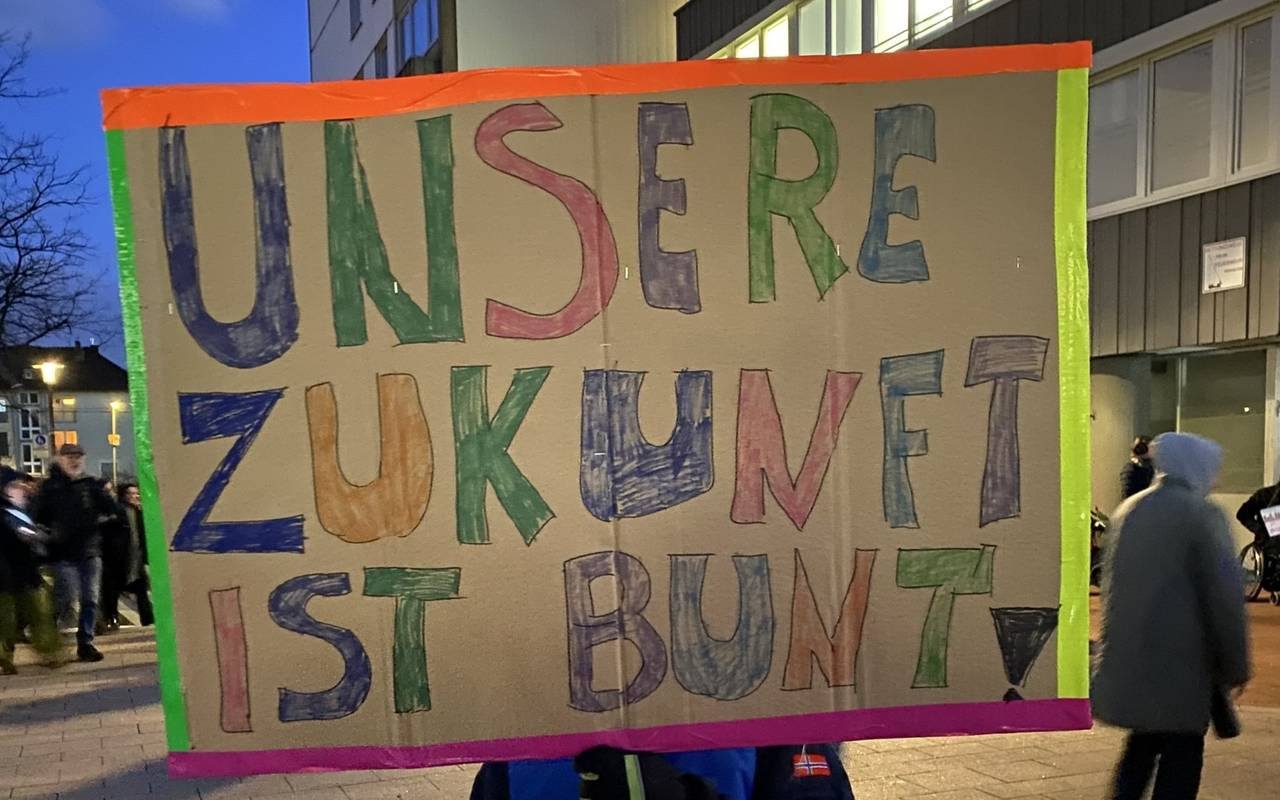 UNSERE
ZUKUNFT
IST BUNT!